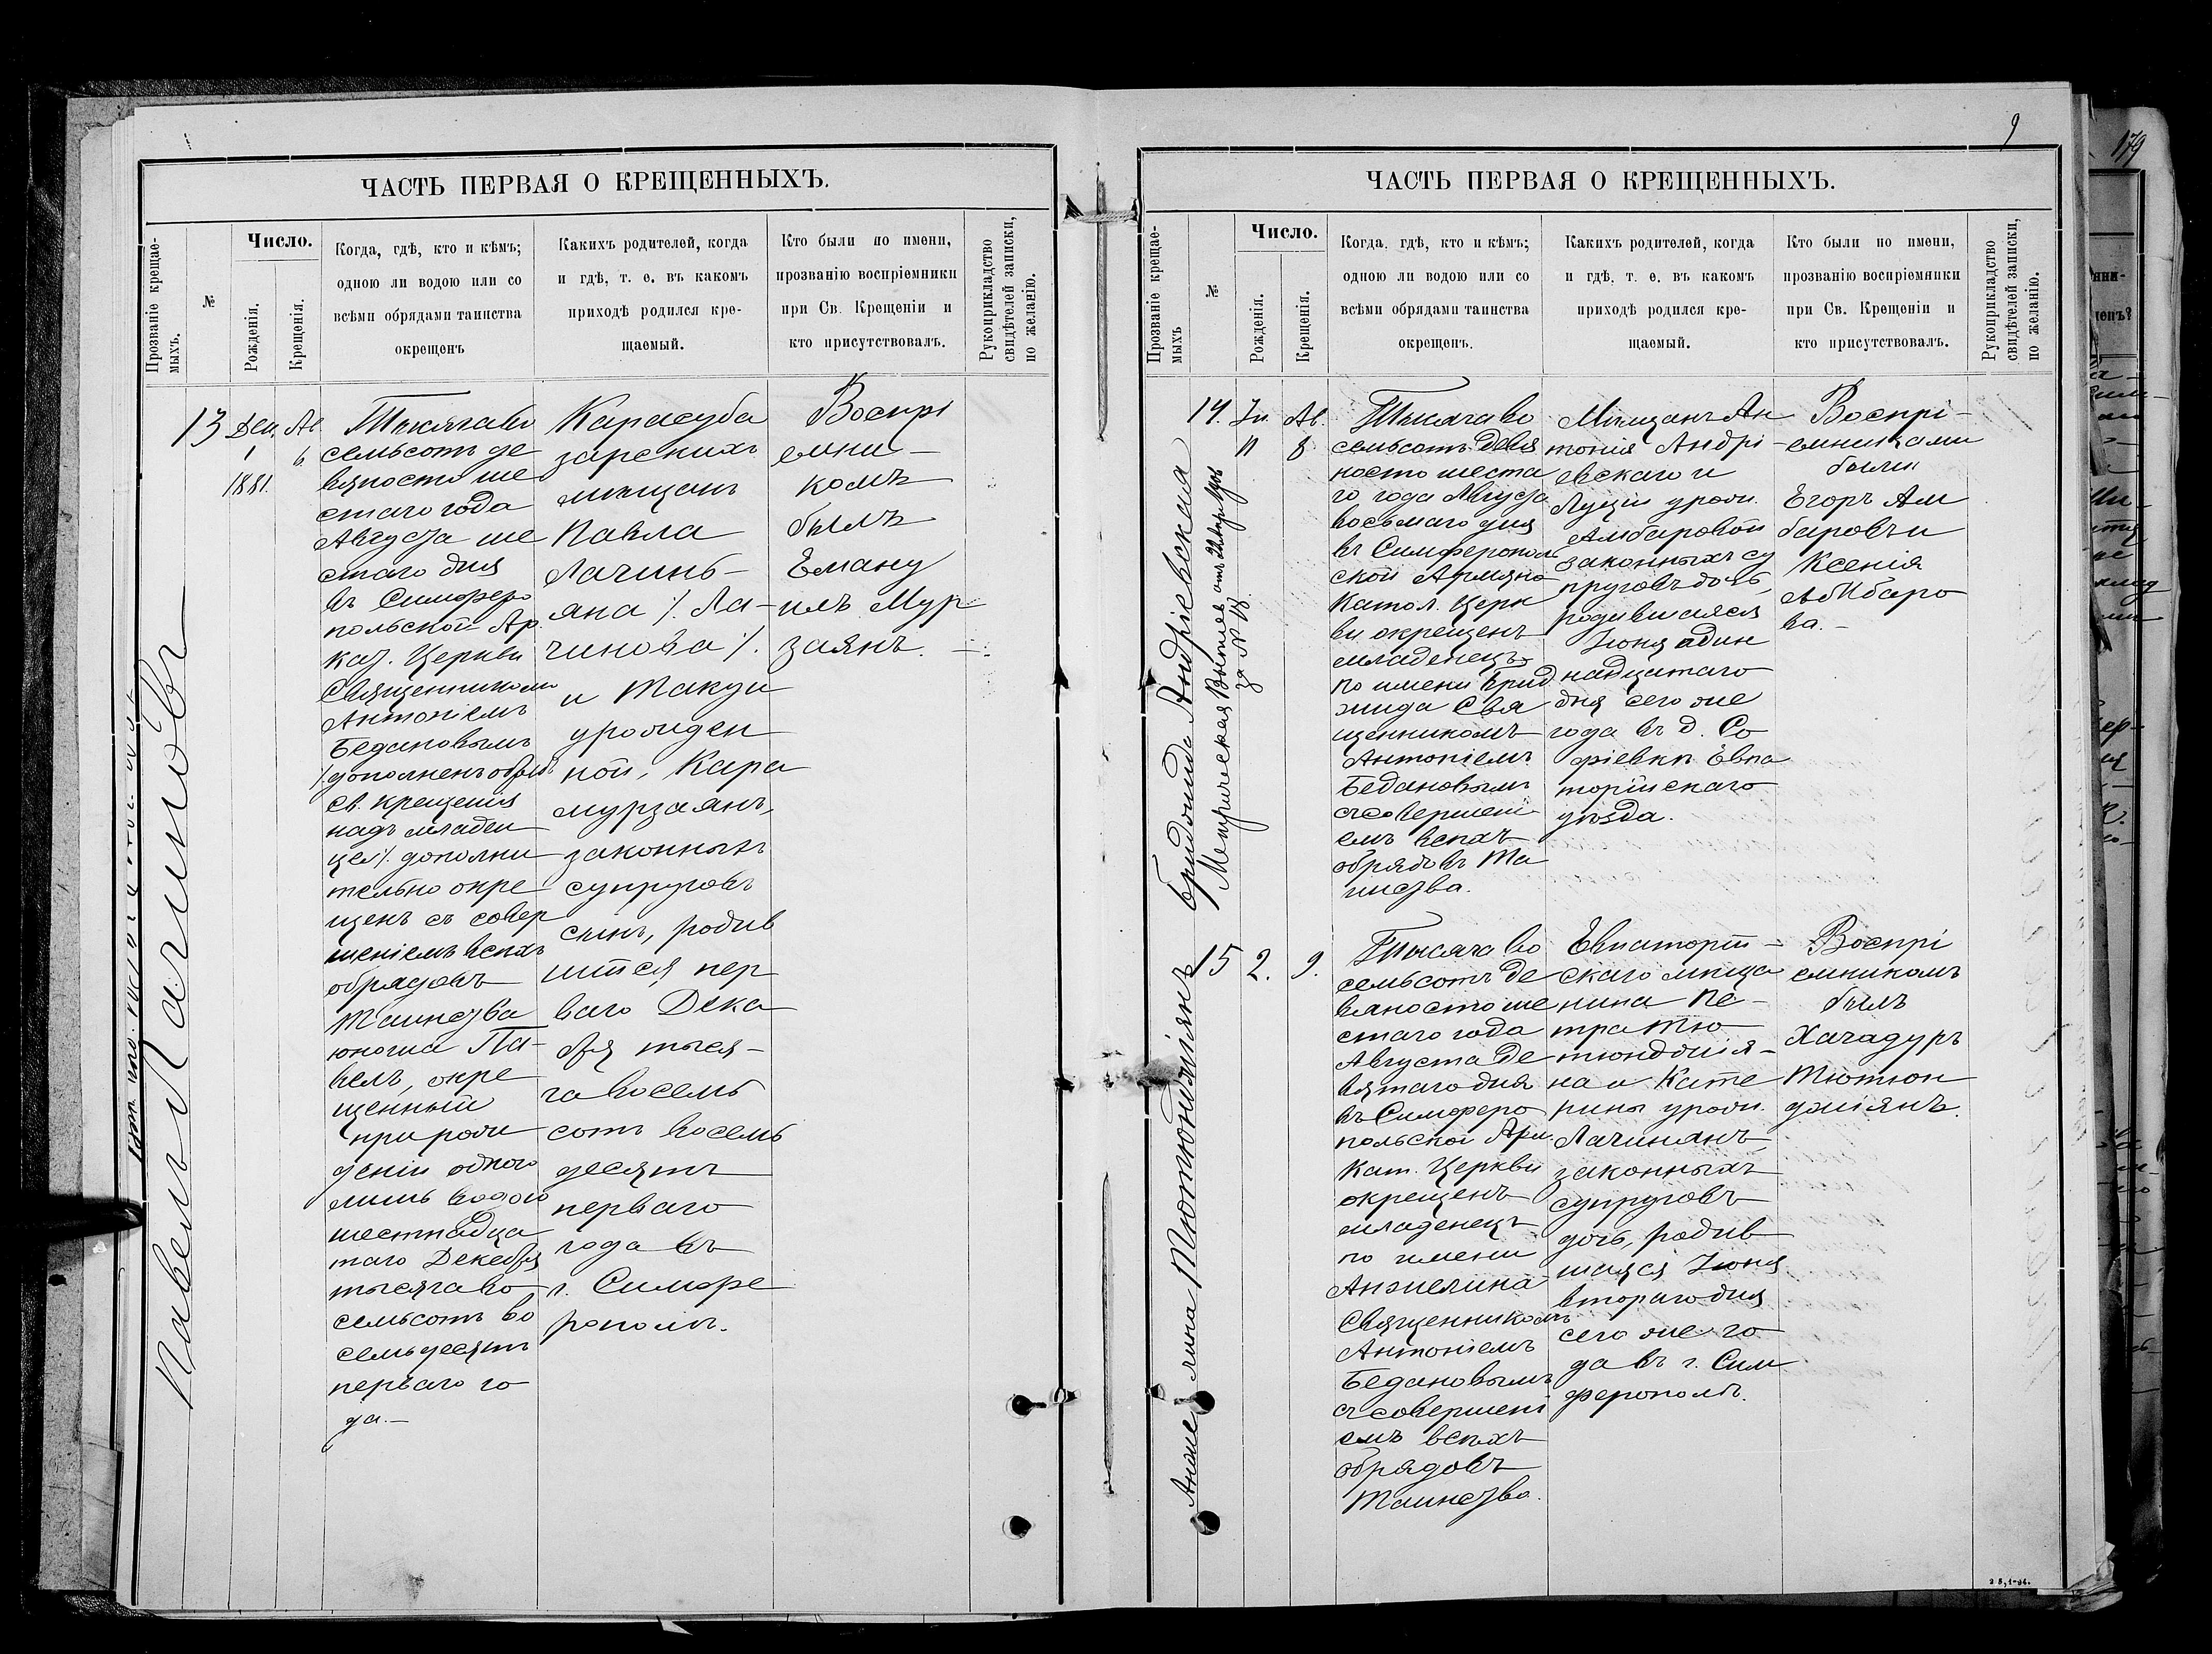 9
179
ЧАСТЬ ПЕРВАЯ О КРЕЩЕННЫХЪ.
Прозваніе крещае-
мыхъ.
№
Число.
Рожденія.
Крещенія.
Когда, гдѣ, кто и кѣмъ;
одною ли водою или со
всѣми обрядами таинства
окрещенъ
Какихъ родителей, когда
и гдѣ, т. е. въ какомъ
приходѣ родился кре-
щаемый.
Кто были по имени,
прозванію воспріемники
при Св. Крещеніи и
кто присутствовалъ.
Рукоприкладство
свидѣтелей записки,
по желанію.
Павелъ Лачиновъ
13
Дек.
1
1881.
Ав.
6.
Тысяча во
семьсотъ де
вяносто ше
стаго года
Августа ше
стаго дня
въ Симферо
польской Ар.
кат. Церкви
Священникомъ
Антоніемъ
Бедановымъ
/.дополненъ обрядъ
св. крещенія
надъ младен
цем/. дополни
тельно окре
щенъ съ совер
шеніемъ всѣхъ
обрядовъ
Таинства
юноша Па-
велъ, окре
щенный
при рож
деніи одною
лишь водою
шестнадца
таго Декабря
тысяча во
семьсотъ во
семьдесятъ
перваго го
да.—
Карасуба
зарскихъ
мѣщанъ
Павла
Лачинь-
яна /. Ла-
чинова /.
и Такуи
урожден
ной, Кара
мурзаянъ,
законныхъ
супруговъ
сынъ, родив
шійся пер
ваго Дека
бря тыся-
ча восемь
сотъ восемь
десятъ
перваго
года въ
г. Симфе
рополѣ.
Воспрі
емни-
комъ
былъ
Еману
илъ Мур
заянъ.—
ЧАСТЬ ПЕРВАЯ О КРЕЩЕННЫХЪ.
Прозваніе крещае-
мыхъ
№
Число.
Рожденія.
Крещенія.
Когда, гдѣ, кто и кѣмъ;
одною ли водою или со
всѣми обрядами таинства
окрещенъ.
Какихъ родителей, когда
и гдѣ, т. е. въ какомъ
приходѣ родился кре-
щаемый.
Кто были по имени,
прозванію воспріемники
при Св. Крещеніи и
кто присутствовалъ.
Рукоприкладство
свидѣтелей записки,
по желанію.
Бриджида Андріевская
Метрическая Выпись отъ 22
за № 18.
14.
Ін.
11
Ав.
8
Тысяча во
семьсотъ девя
носто шеста
го года Августа
восьмаго дня
въ Симферополь
ской Армяно
Катол. Церк
ви окрещенъ
младенецъ
по имени Брид
жида Свя
щенникомъ
Антоніемъ
Бедановымъ
съ совершені
емъ всѣхъ
обрядовъ Та
инства.
Мѣщанъ Ан
тонія Андрі-
евскаго и
Луціи урож.
Амбаровой
законныхъ су
пруговъ дочь,
родившаяся
Іюня один
надцатаго
дня сего же
года въ д. Со
фіевкѣ Евпа
торійскаго
уѣзда.
Воспрі-
емниками
были
Егоръ Ам
баровъ и
Ксенія
Амбаро
ва.—
Анжелина Тютюнджіянъ
15
2.
9.
Тысяча во
семьсотъ де
вяносто ше
стаго года
Августа де
вятаго дня
въ Симферо
польской Арм.
Кат. Церкви
окрещенъ
младенецъ
по имени
Анжелина
Священникомъ
Антоніемъ
Бедановымъ
съ совершені
емъ всѣхъ
обрядовъ
Таинства.
Евпаторій-
скаго мѣща
нина Пе-
тра Тю-
тюнджія-
на и Кате
рины урож.
Лачинянъ
законныхъ
супруговъ
дочь, родив
шаяся Іюня
втораго дня
сего же го
да въ г. Сим
ферополѣ.
Воспрі
емникомъ
былъ
Хачадуръ
Тютюн
джіянъ.